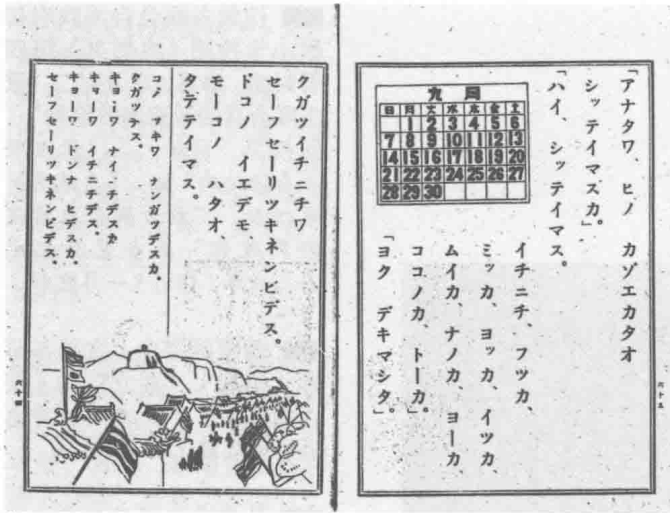 「アナタワ、ヒノ カゾエカタオ
シッテイマスカ。」
「ハイ、シッテイマス。
九月
日 月 火 水 木 金 土
1 2 3 4 5 6
7 8 9 10 11 12 13
14 15 16 17 18 19 20
21 22 23 24 25 26 27
28 29 30
イチニチ、フツカ、
ミッカ、ヨッカ、イツカ
ムイカ、ナノカ、ヨーカ
ココノカ、トーカ。」
「ヨク デキマシタ。」
クガツイチニチワ
セーフセーリツキネンビデス。
ドコノ イエデモ
モーコノ ハタオ、
タテテイマス。
コノ ツキワ ナンガツデスカ。
クガツデス。
キョーワ ナンニチデスカ
キョーワ イチニチデス。
キョーワ ドンナ ヒデスカ。
セーフセーリツキネンビデス。
六十四